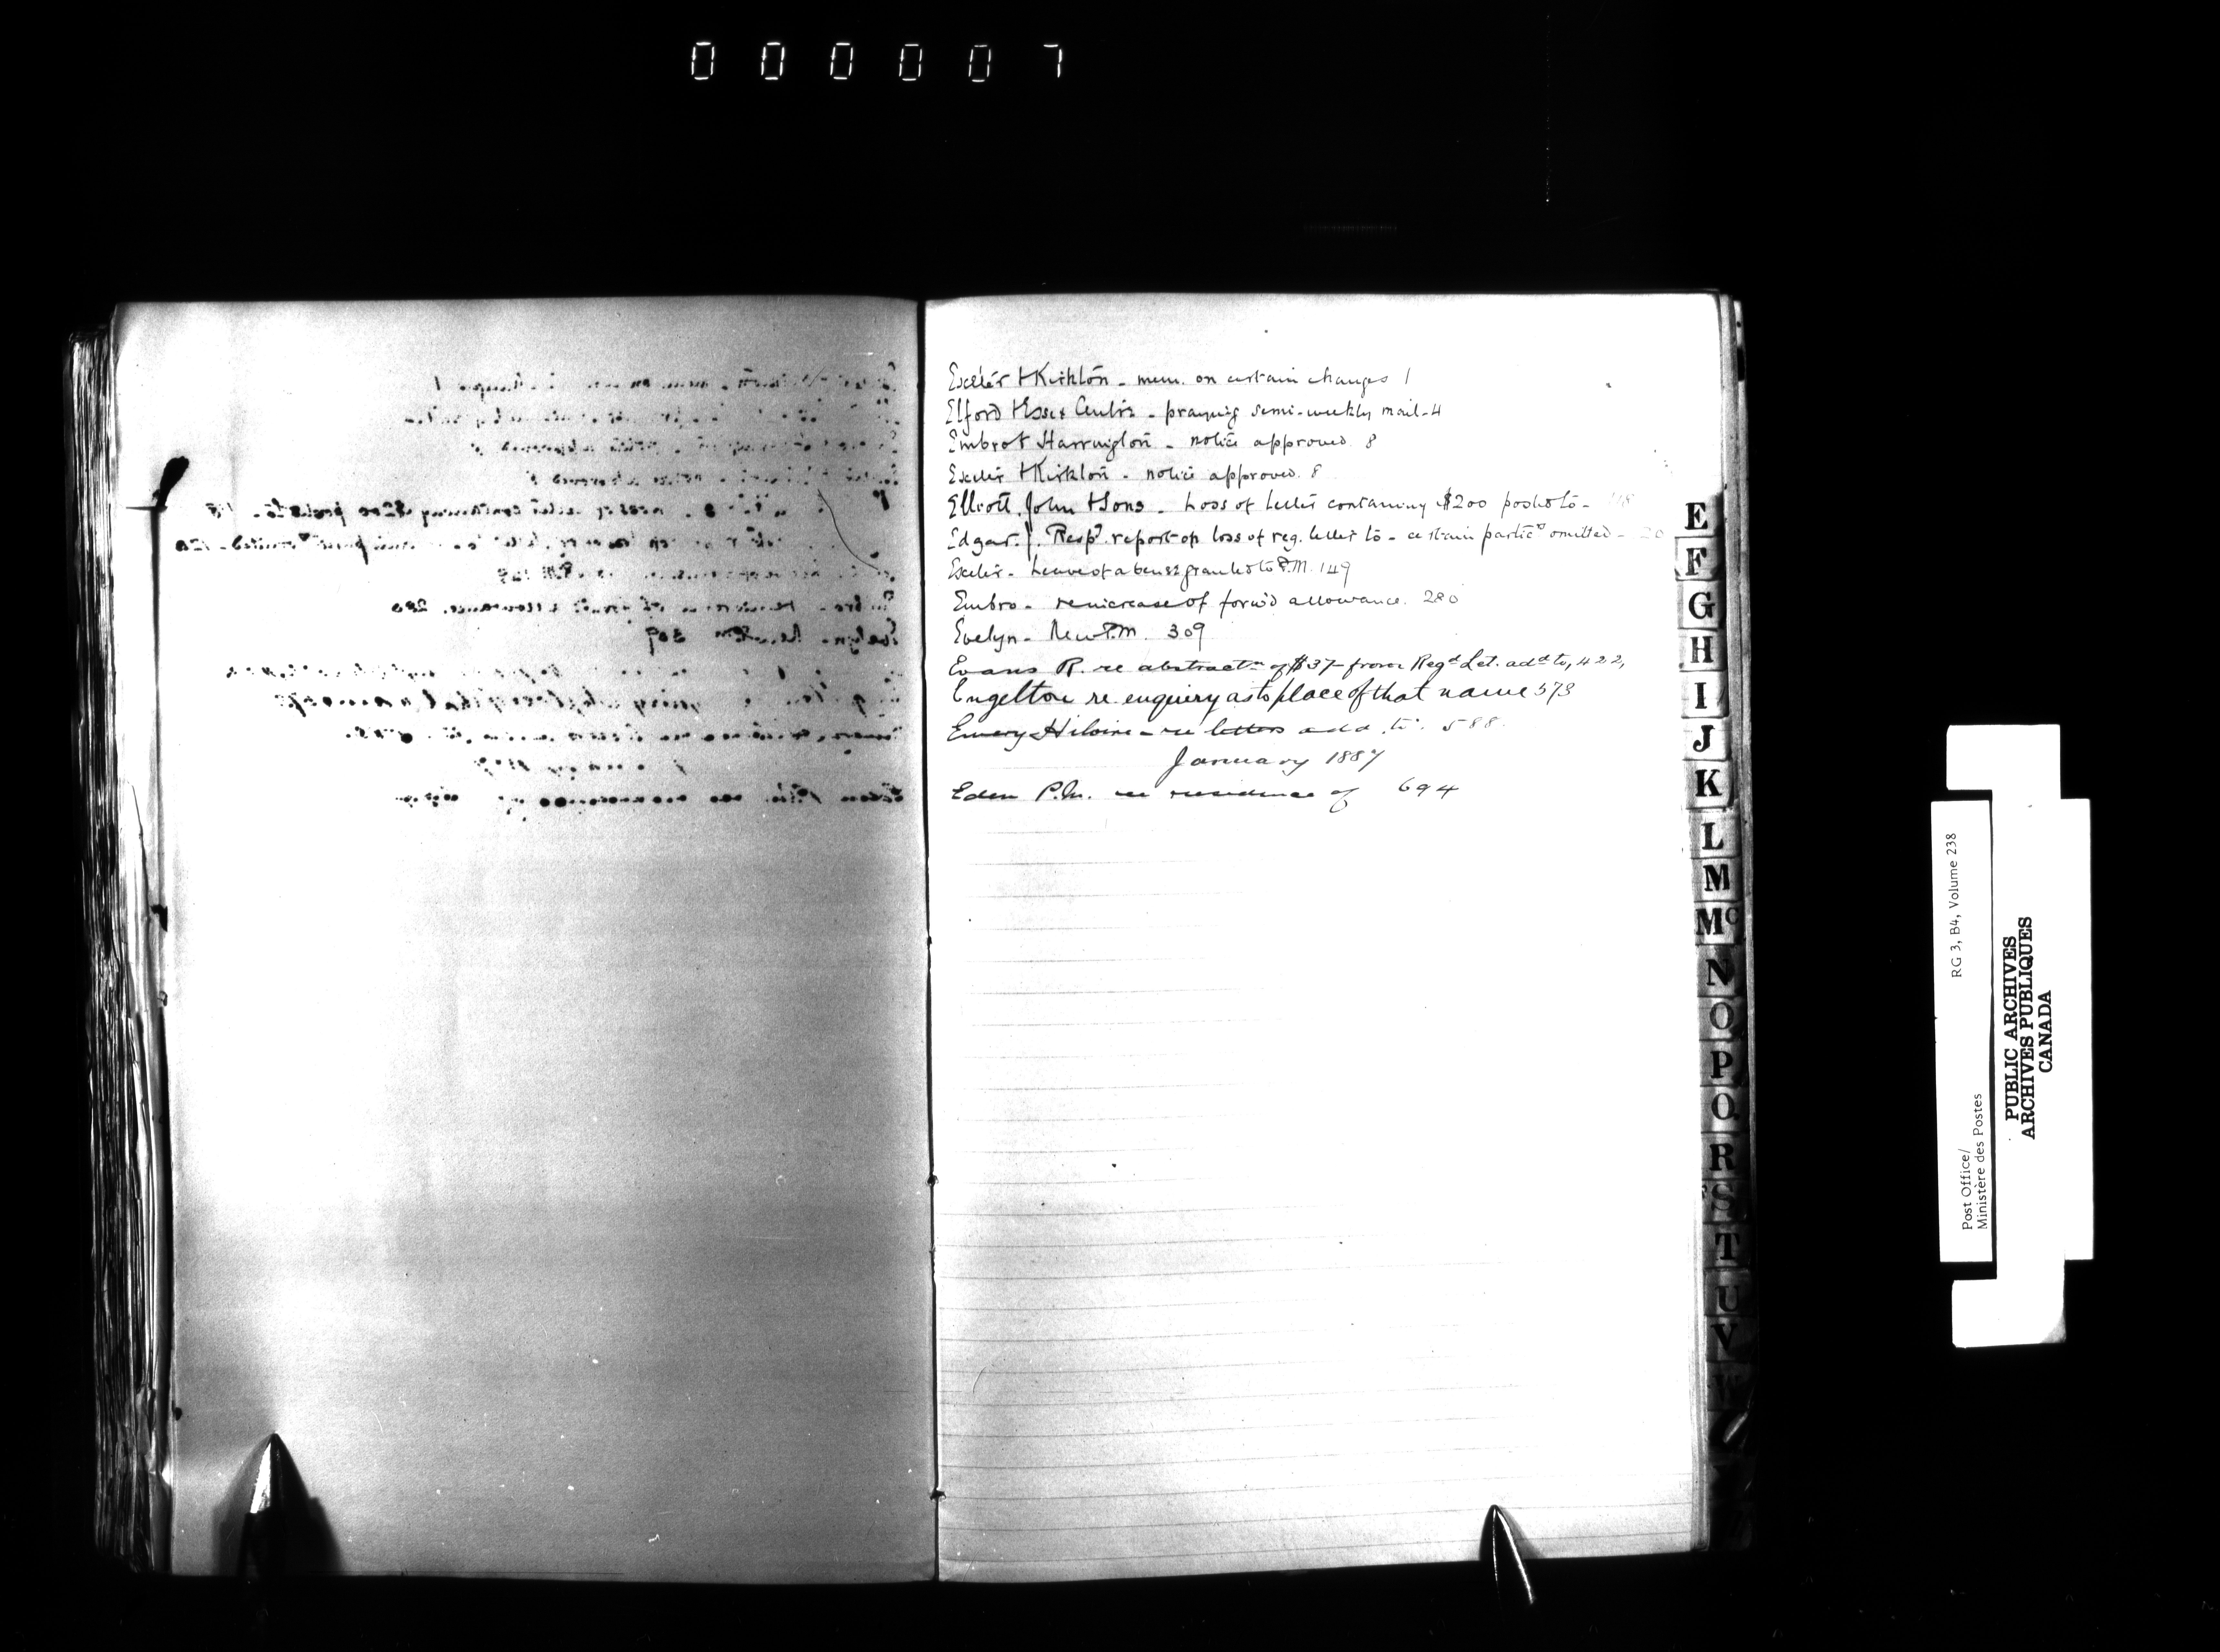 000007
Exeter & Kirkton - mem. on certain changes 1
Elford & Essex Centre - praying semi-weekly mail - 4
Embro & Harrington - notice approved. 8
Exeter & Kirkton - notice approved. 8
Elliott, John & Sons - Loss of letter containing $200 posted to - 118
Edgar. J. Resp.g report on loss of reg. letter to - certain partic.rs omitted - 120
Exeter - Leave of absence granted to P.M. 149
Embro - re increase of forw'd allowance. 280
Evelyn - New P.M. 309
Evans R. re abstract.n of $37- from Reg.d Let. add.d to, 422,
Engelton re enquiry as to place of that name 573
Emery Hilaire - re letters add. to. 588.
January 1887
Eden P.M. re residence of 694
E
F
G
H
I
J
K
L
M
Mc
N
O
P
Q
R
S
T
U
V
W
Post Office/
Ministère des Postes
RG 3, B4, Volume 238
PUBLIC ARCHIVES
ARCHIVES PUBLIQUES
CANADA